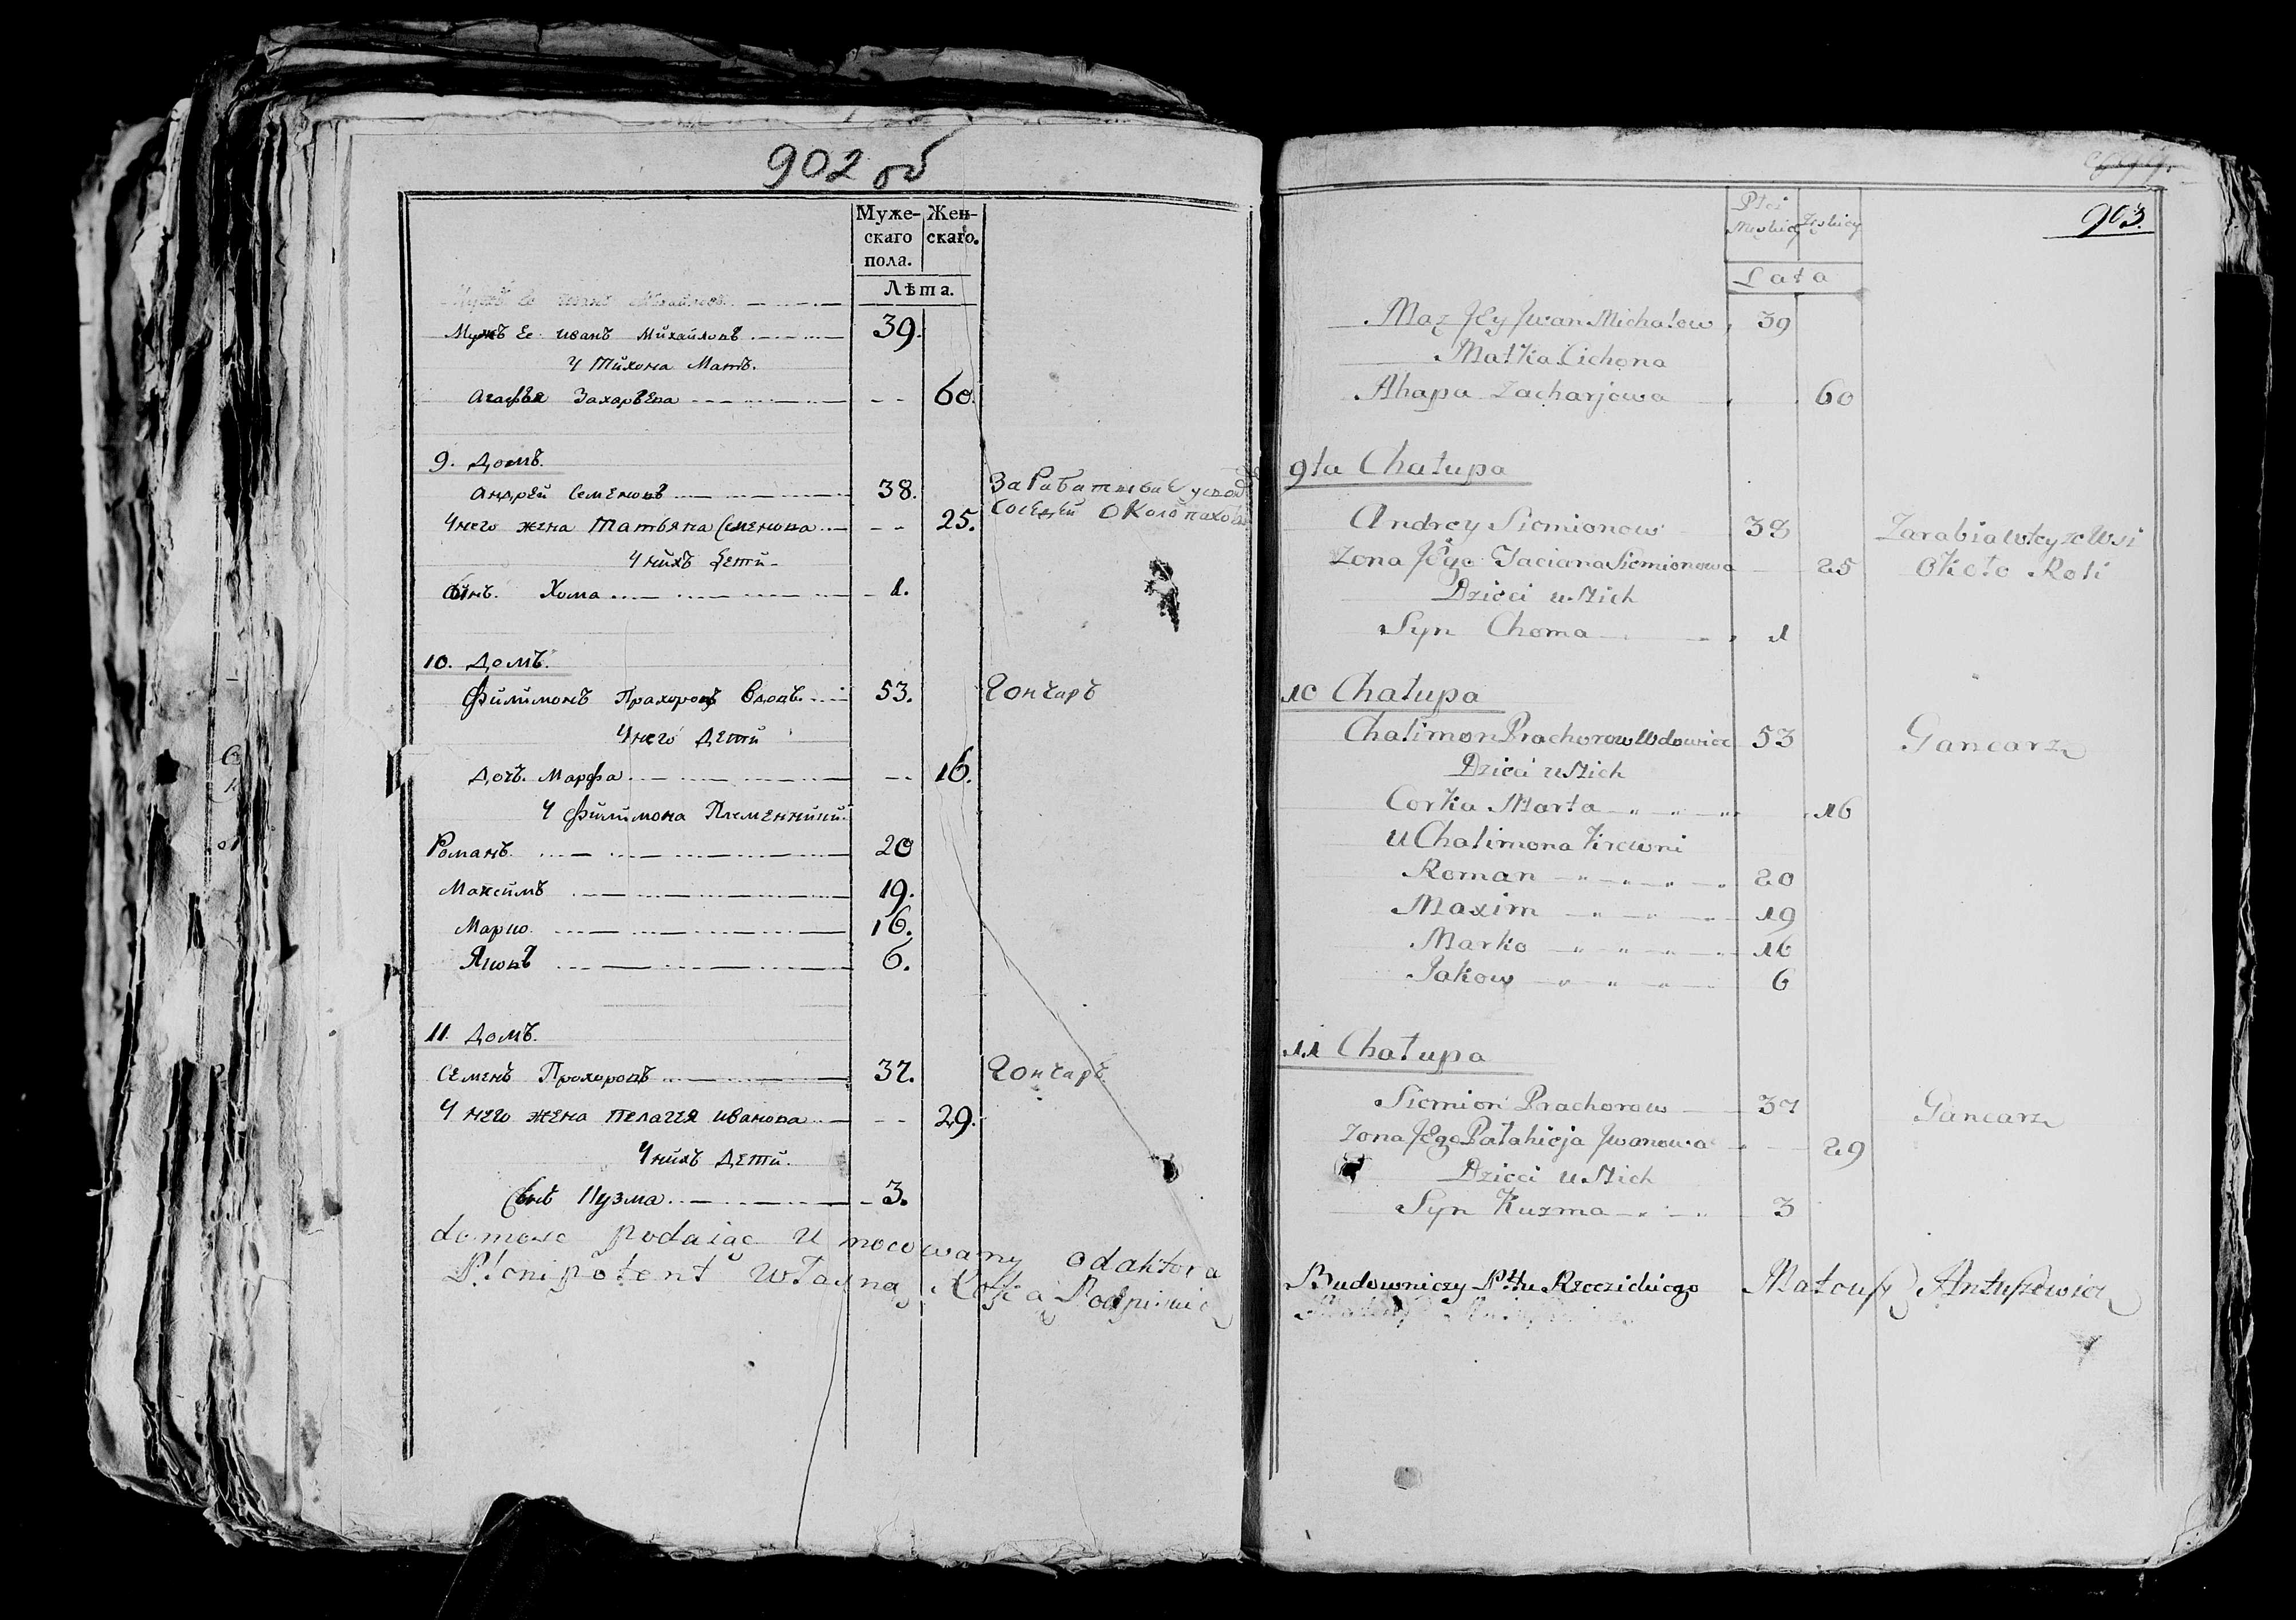 902 об
Муже- Жен-
скаго скаго.
пола.
Лѣта.
Мужъ Ее иванъ Михайловъ
Мужъ Ее иванъ Михайловъ 39.
У Тихона Мать.
Агафья Захарьева 60.
9. Домъ.
Андрей Семеновъ 38.
У него жена Татьяна Семенова 25.
У нихъ дети
Сынъ. Хома 1.
10. Домъ.
Филимонъ Прохоровъ Вдовъ. 53. Гончаръ
У него Дети
Дочь. Марфа 16.
У Филимона Племенники
Романъ. 20
Максимъ 19.
Марко. 16.
Яковъ 6.
11. Домъ.
Семенъ Прохоровъ 37. Гончаръ
У него жена Пелагея иванова 29.
У нихъ Дети.
Сынъ Кузма 3.
domosc podaiac Umocowany od aktora
Plenipotent Własną Ręką Podpisuię
903.
Płci
Męskiey Żęskiey
Lata
Mąz Jey Jwan Michałow 39
Matka Cichona
Ahapa Zacharjowa 60
9ta Chałupa
Andrey Siemionow 38 Zarabiaiący ze Wsi
Zona Jego Taciana Siemionowa 25 Około Roli
Dzieci u Nich
Syn Choma 1
10 Chałupa
Chalimon Prachorow Wdowiec 53 Gancarz
Dzieci u Nich
Corka Marta 16
u Chalimona Krewni
Roman 20
Maxim 19
Marko 16
Jakow 6
11 Chałupa
Siemion Prachorow 37 Gancarz
Zona Jego Pałahieja Jwanowa 29
Dzieci u Nich
Syn Kuzma 3
Budowniczy Pttu Rzeczickiego Mateusz Antuszewicz